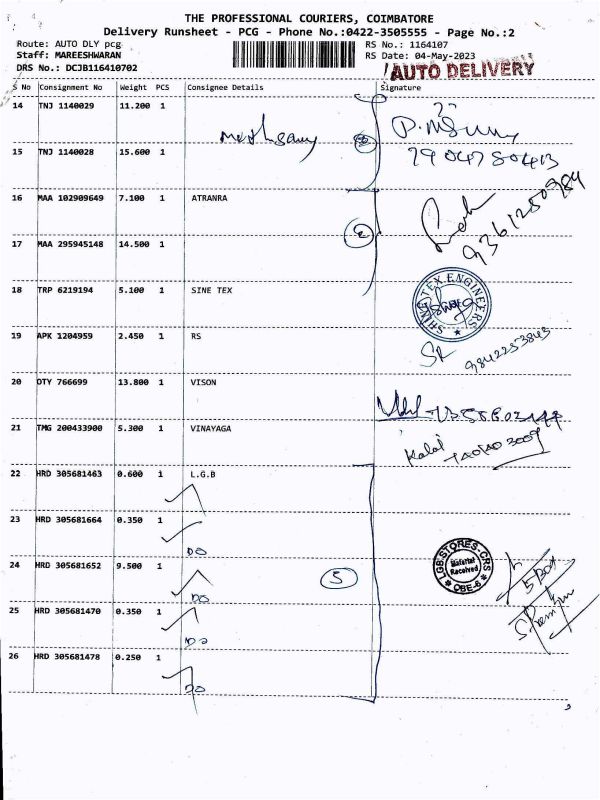 THE PROFESSIONAL COURIERS, COIMBATORE
Delivery Runsheet - PCG - Phone No.:0422-3505555 - Page No.:2
Route: AUTO DLY pcg
Staff: MAREESHWARAN
DRS No.: DCJB116410702
RS No.: 1164107
RS Date: 04-May-2023
AUTO DELIVERY
S No Consignment No Weight PCS Consignee Details Signature
14 TNJ 1140029 11.200 1
7904780413
15 TNJ 1140028 15.600 1
16 MAA 102909649 7.100 1 ATRANRA
9361250984
17 MAA 295945148 14.500 1
2
18 TRP 6219194 5.100 1 SINE TEX
SHINE TEX ENGINEERS
19 APK 1204959 2.450 1 RS
SR 9842253843
20 OTY 766699 13.800 1 VISON
21 TMG 200433900 5.300 1 VINAYAGA
Kalai
22 HRD 305681463 0.600 1 L.G.B
23 HRD 305681664 0.350 1
DO
24 HRD 305681652 9.500 1
DO
5
LGB STORES-CRS
Material
Received
CBE-6
25 HRD 305681470 0.350 1
DO
26 HRD 305681478 0.250 1
DO